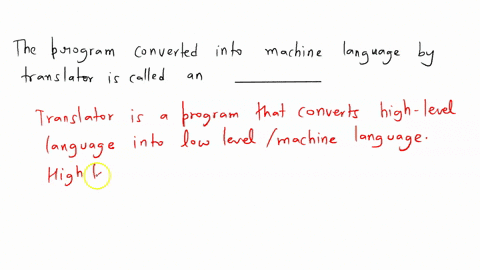 The program converted into machine language by
translator is called an ________
Translator is a program that converts high-level
language into low level / machine language.
High l